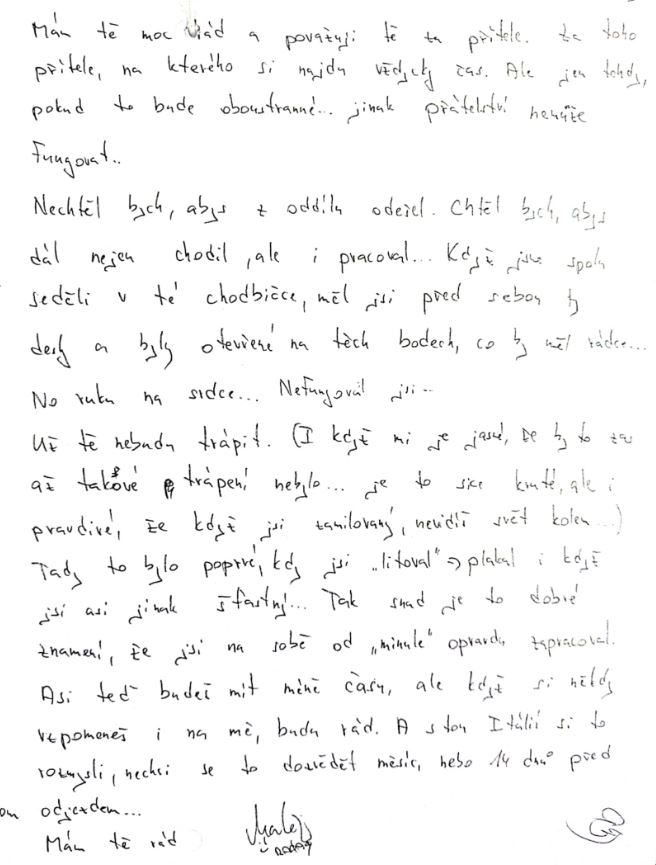 Mám tě moc rád a považuji tě za přítele. Za toho
přítele, na kterého si najdu vždycky čas. Ale jen tehdy,
pokud to bude oboustranné... jinak přátelství nemůže
fungovat..
Nechtěl bych, abys z oddílu odešel. Chtěl bych, abys
dál nejen chodil, ale i pracoval... Když jsme spolu
seděli v té chodbičce, měl jsi před sebou ty
desky a byly otevřené na těch bodech, co by měl rádce...
No ruku na srdce... Nefungoval jsi..
Už tě nebudu trápit. (I když mi je jasné, že by to zas
až takové trápení nebylo... je to sice kruté, ale i
pravdivé, že když jsi zamilovaný, nevidíš svět kolem...)
Tady to bylo poprvé, kdy jsi „litoval" => plakal i když
jsi asi jinak šťastný... Tak snad je to dobré
znamení, že jsi na sobě od „minule" opravdu zapracoval.
Asi teď budeš mít méně času, ale když si někdy
vzpomeneš i na mě, budu rád. A s tou Itálií si to
rozmysli, nechci se to dozvědět měsíc, nebo 14 dnů před
odjezdem...
Mám tě rád